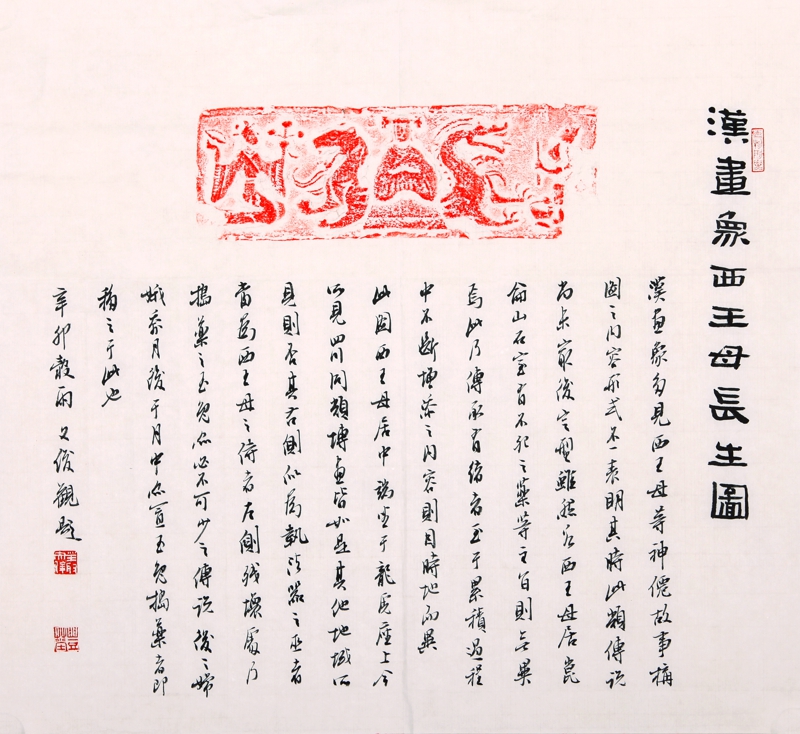 漢畫象西王母長生圖
漢畫象多見西王母等神僊故事構
圖之內容形式不一表明其時此類傳説
尚未最後定型雖然若西王母居崑
侖山石室有不死之藥等主旨則無異
焉此乃傳承有緒者至于累積過程
中不斷補添之內容則因時地而異
此圖西王母居中端坐于龍虎座上今
所見四川同類塼畫皆如是其他地域所
見則否其右側似爲執法器之巫者
當爲西王母之侍者左側殘壞處乃
搗藥之玉兔亦必不可少之傳説後之嫦
娥奔月後于月中亦置玉兔搗藥者即
移之于此也
辛卯穀雨 又俊觀題